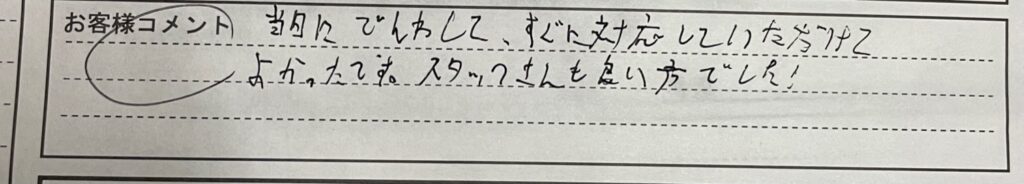 お客様コメント 当日にでんわして、すぐに対応していただけて
よかったです。スタッフさんも良い方でした!